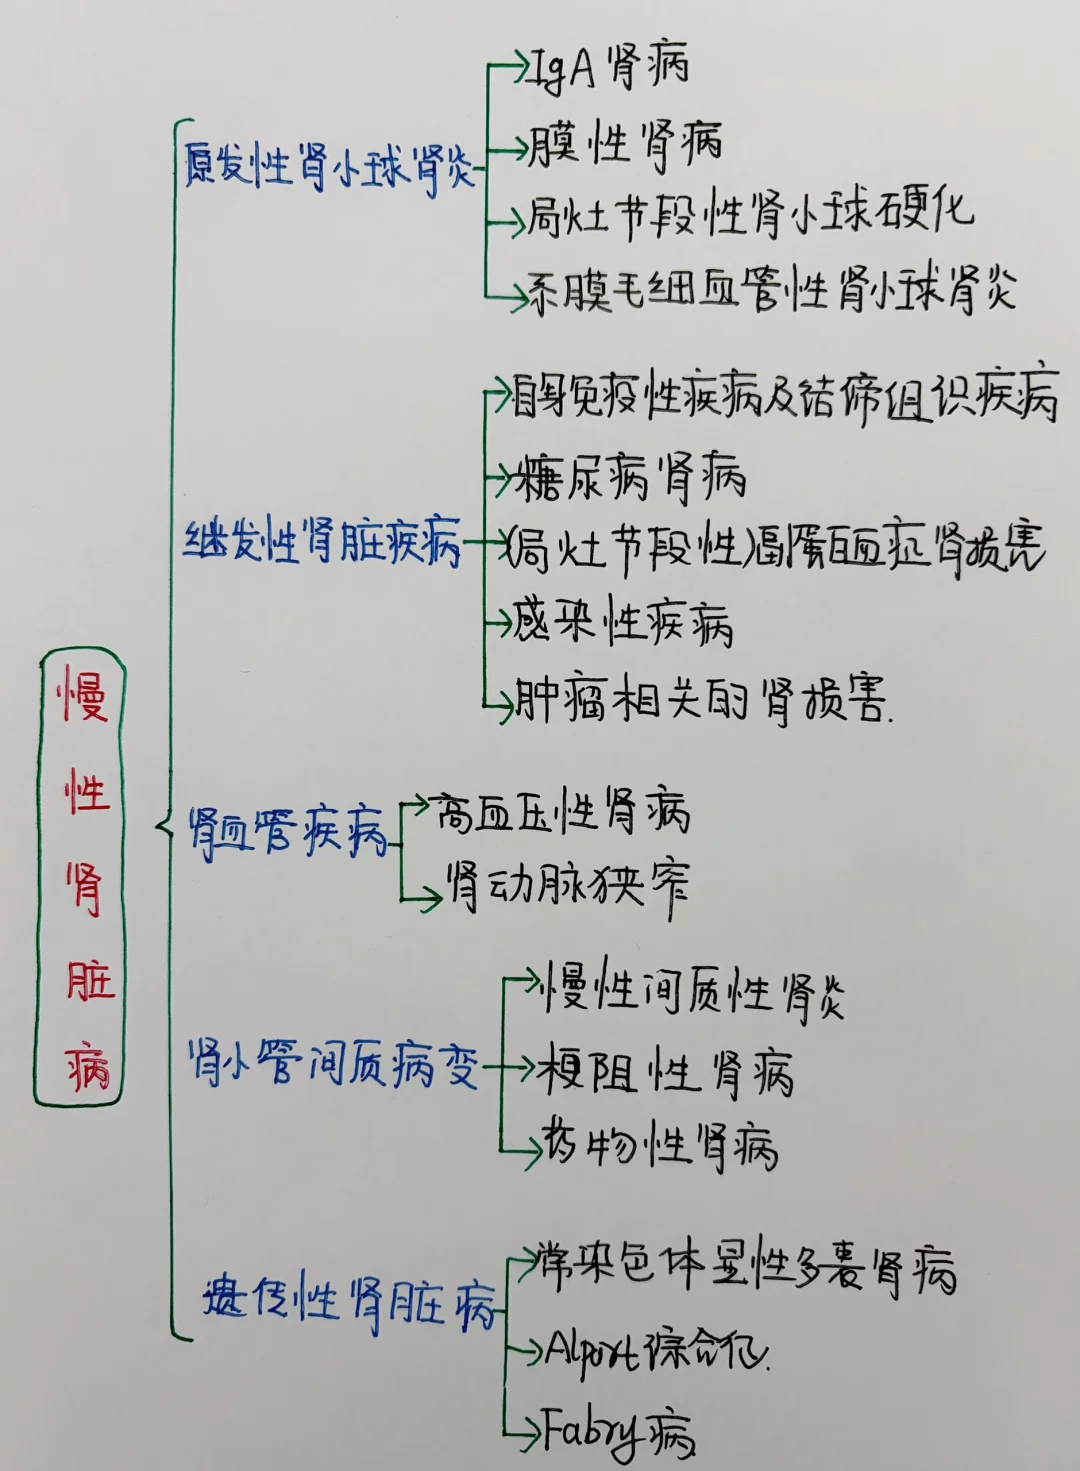 慢性肾脏病
原发性肾小球肾炎
IgA肾病
膜性肾病
局灶节段性肾小球硬化
系膜毛细血管性肾小球肾炎
继发性肾脏疾病
自身免疫性疾病及结缔组织疾病
糖尿病肾病
(局灶节段性)副蛋白血症肾损害
感染性疾病
肿瘤相关的肾损害.
肾血管疾病
高血压性肾病
肾动脉狭窄
肾小管间质病变
慢性间质性肾炎
梗阻性肾病
药物性肾病
遗传性肾脏病
常染色体显性多囊肾病
Alport综合征.
Fabry病